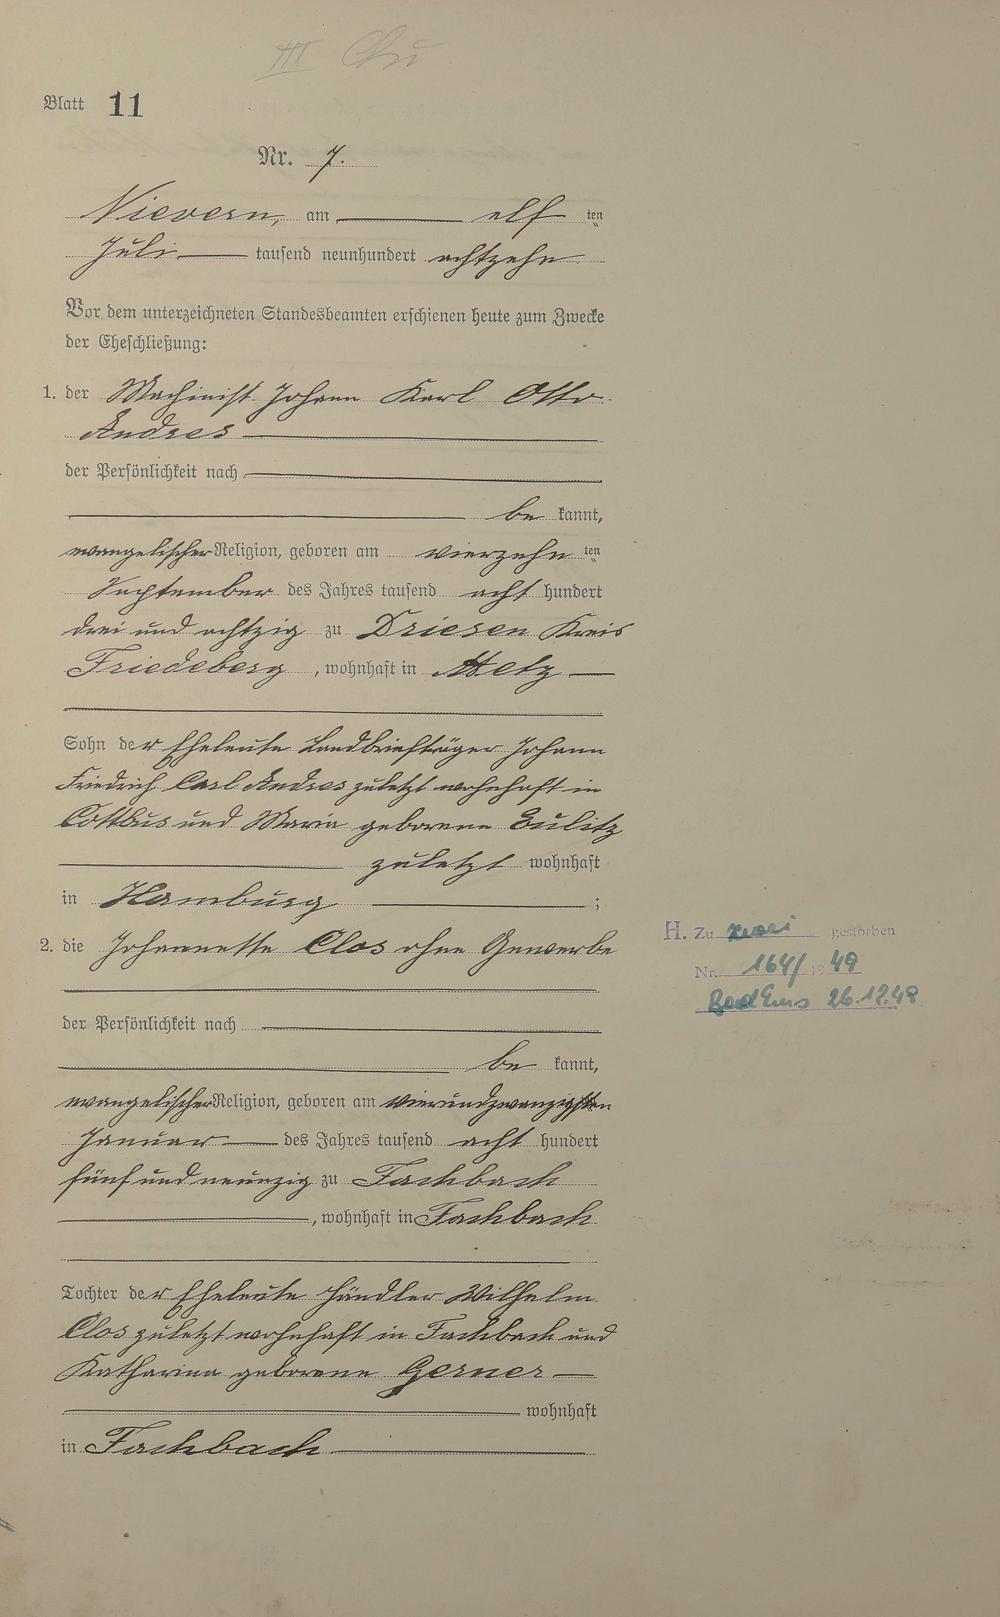 III
Blatt 11
Nr. 7.
Nievern, am elf ten
Juli tausend neunhundert achtzehn
Vor dem unterzeichneten Standesbeamten erschienen heute zum Zwecke
der Eheschließung:
1. der Machinist Johann Karl Otto
Andres
der Persönlichkeit nach
be kannt,
evangelischer Religion, geboren am vierzehn ten
September des Jahres tausend acht hundert
drei und achtzig zu Driesen Kreis
Friedeberg, wohnhaft in Metz
Sohn der Eheleute Landbriefträger Johann
Friedrich Carl Andres zuletzt wohnhaft in
Cottbus und Maria geborene Eulitz
zuletzt wohnhaft
in Hamburg ;
2. die Johannette Clos ohne Gewerbe
der Persönlichkeit nach
be kannt,
evangelischer Religion, geboren am vierundzwanzigsten
Januar des Jahres tausend acht hundert
fünf und neunzig zu Fachbach
, wohnhaft in Fachbach
Tochter der Eheleute Händler Wilhelm
Clos zuletzt wohnhaft in Fachbach und
Katharina geborene Gerner
wohnhaft
in Fachbach
H. Zu gestorben
Nr. 164/1949
Bad Ems 26.12.49